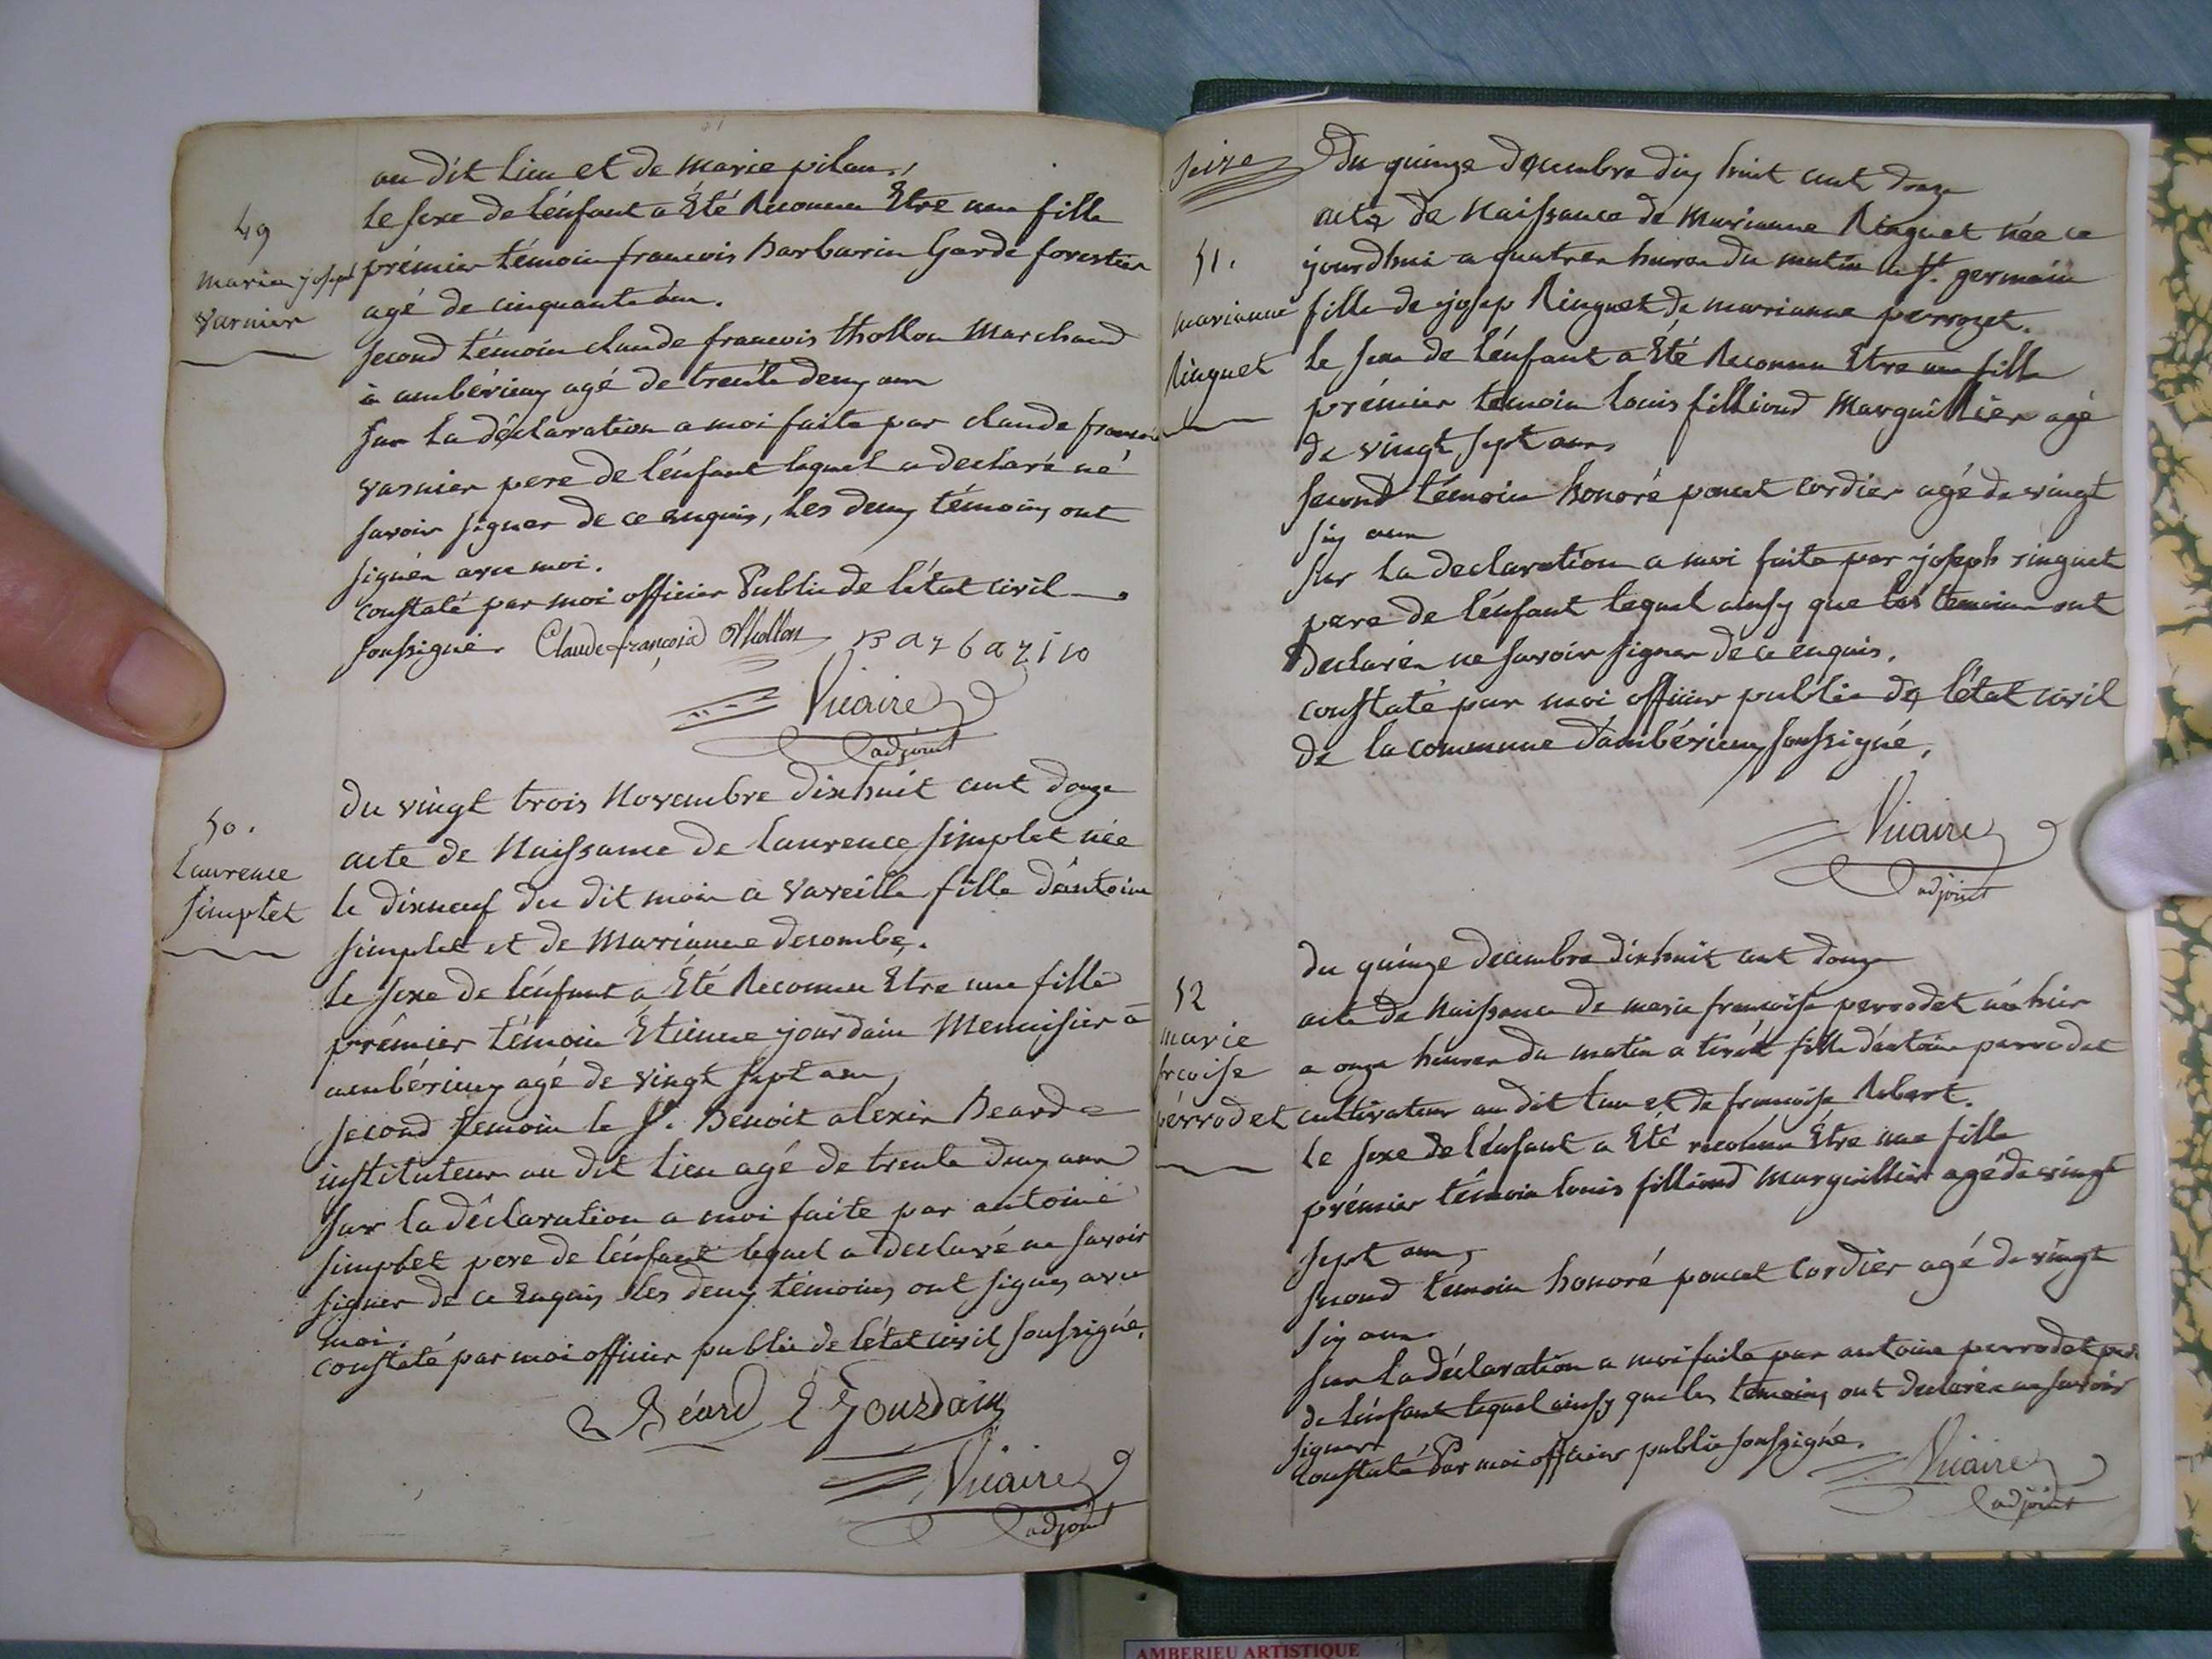 au dit lieu et de marie pilan,
le sexe de l'énfant a Été Reconnu Etre une fille
49
marie joseph
Varnier
prémier témoin francois Barbarin Garde forestier
agé de cinquante ans.
second témoin claude francois thollon Marchand
à ambérieux agé de trente deux ans
sur la déclaration a moi faite par claude francois
varnier pere de l'énfant lequel a declaré ne
savoir signer de ce enquis, les deux témoins ont
signés avec moi.
constaté par moi officier Public de l'état civil
soussigné. Claude françois thollon Barbarin
Vicaire
adjoint
50.
Laurence
simplet
du vingt trois Novembre dixhuit cent douze
acte de Naissance de laurence simplet née
le dixneuf du dit mois a Vareille fille d'antoine
simplet et de Marianne decombe.
le sexe de l'énfant a Été Reconnu Etre une fille
prémier témoin Étienne jourdain Menuisier a
ambérieux agé de vingt sept ans,
second temoin le Sr. Benoit alexis Beard
instituteur au dit lieu agé de trente deux ans
sur la déclaration a moi faite par antoine
simplet pere de l'énfant lequel a declaré ne savoir
signer de ce Enquis les deux témoins ont signés avec
moi.
constaté par moi officier public de l'état civil soussigné.
Béard E Jourdain
Vicaire
adjoint
seize
du quinze decembre dix huit cent douze
acte de Naissance de Marianne Ringuet née ce
51.
marianne
Ringuet
jourdhui a quatres heures du matin a St. germain
fille de josep Ringuet de marianne perrozet.
le sexe de l'énfant a Été Reconnu Etre une fille
prémier temoin louis filliond Marguillier agé
de vingt sept ans
second témoin honoré poncet cordier agé de vingt
six ans
sur la declaration a moi faite par joseph ringuet
pere de l'énfant lequel ainsy que les temoins ont
declarés ne savoir signer de ce enquis.
constaté par moi officier public de l'état civil
de la commune d'ambérieux soussigné.
Vicaire
adjoint
52
marie
frcoise
pérrodet
du quinze decembre dixhuit cent douze
acte de Naissance de marie francoise perrodet née hier
a onze heures du matin a tiret fille d'antoine perrodet
cultivateur au dit lieu et de francoise Robert.
le sexe de l'énfant a Été reconnu Être une fille
prémier témoin louis filliond Marguillier agé de vingt
sept ans,
second témoin honoré poncet cordier agé de vingt
six ans
sur la déclaration a moi faite par antoine perrodet pere
de l'énfant lequel ainsy que les temoins ont declarés ne savoir
signer
constaté Par moi officier public soussigné.
Vicaire
adjoint
AMBERIEU ARTISTIQUE